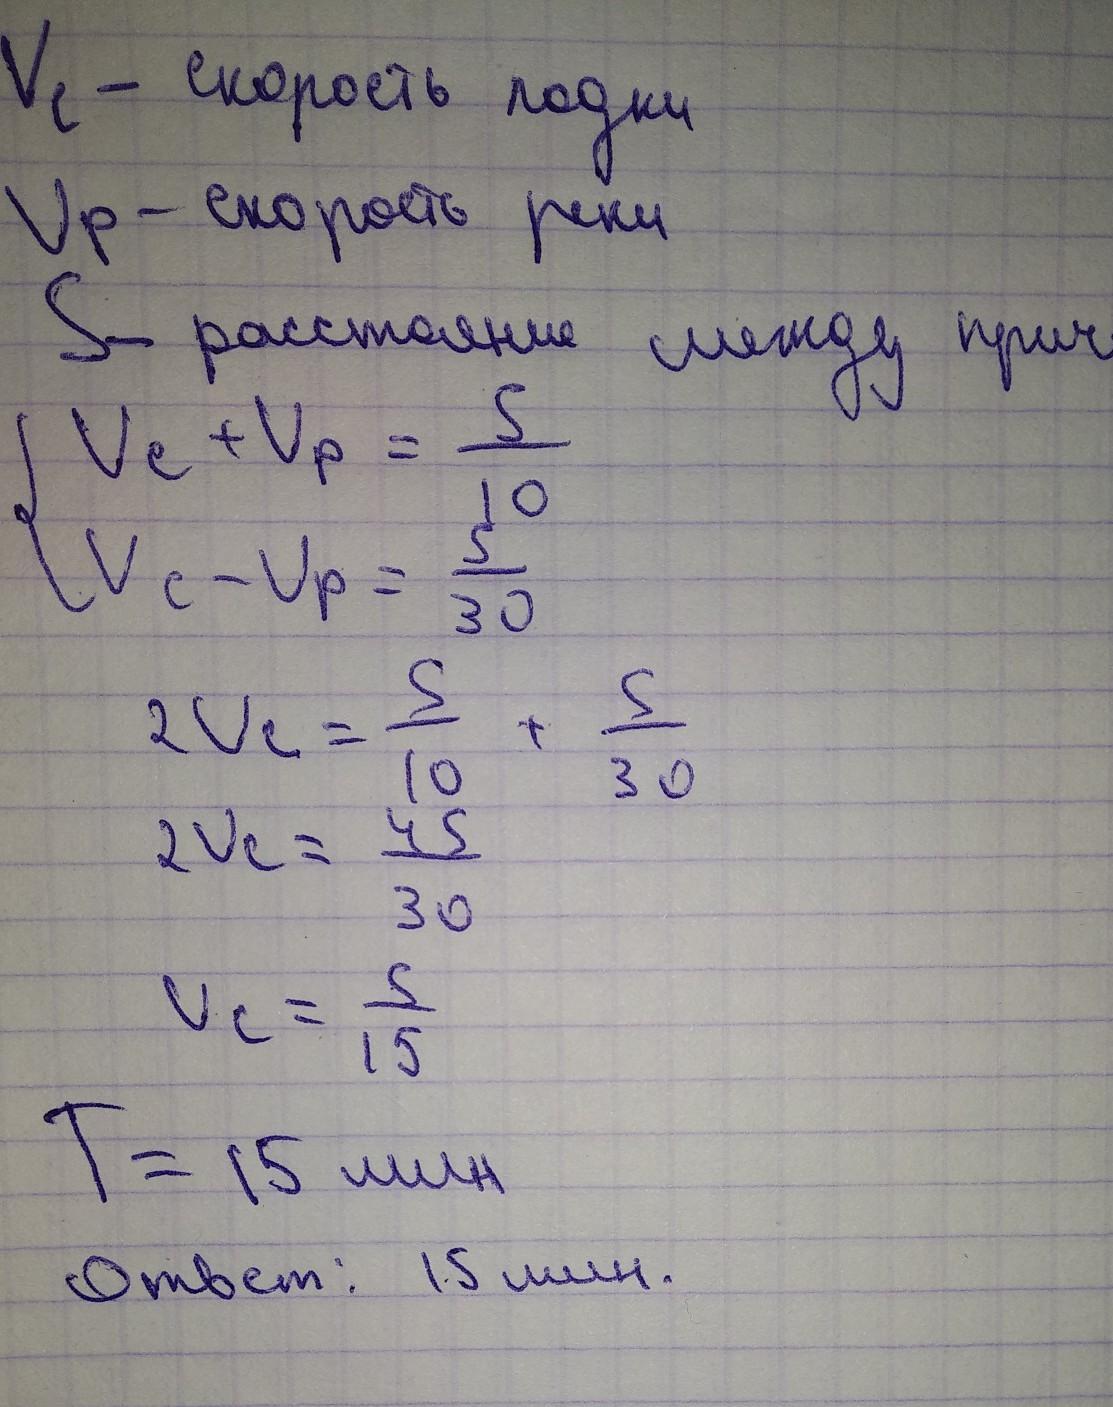 Vс – скорость лодки
Vр – скорость реки
S – расстояние между прич
{ Vс + Vр = S/10
Vс – Vр = S/30
2Vс = S/10 + S/30
2Vс = 4S/30
Vс = S/15
T = 15 мин
Ответ: 15 мин.